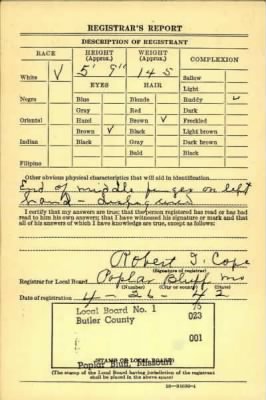 REGISTRAR'S REPORT
DESCRIPTION OF REGISTRANT
RACE HEIGHT (Approx.) WEIGHT (Approx.) COMPLEXION
White ✓ 5' 8" 145 Sallow
Light
EYES HAIR
Negro Blue Blonde Ruddy ✓
Gray Red Dark
Oriental Hazel Brown ✓ Freckled
Brown ✓ Black Light brown
Indian Black Gray Dark brown
Bald Black
Filipino
Other obvious physical characteristics that will aid in identification
End of middle finger on left
hand - disfigured
I certify that my answers are true; that the person registered has read or has had
read to him his own answers; that I have witnessed his signature or mark and that
all of his answers of which I have knowledge are true, except as follows:
Robert I. Cope
(Signature of registrar)
Registrar for Local Board Poplar Bluff Mo
(Number) (City or county) (State)
Date of registration 4-26-42
Local Board No. 1 75
Butler County 023
001
(STAMP OF LOCAL BOARD)
Poplar Bluff, Missouri
(The stamp of the Local Board having jurisdiction of the registrant
shall be placed in the above space)